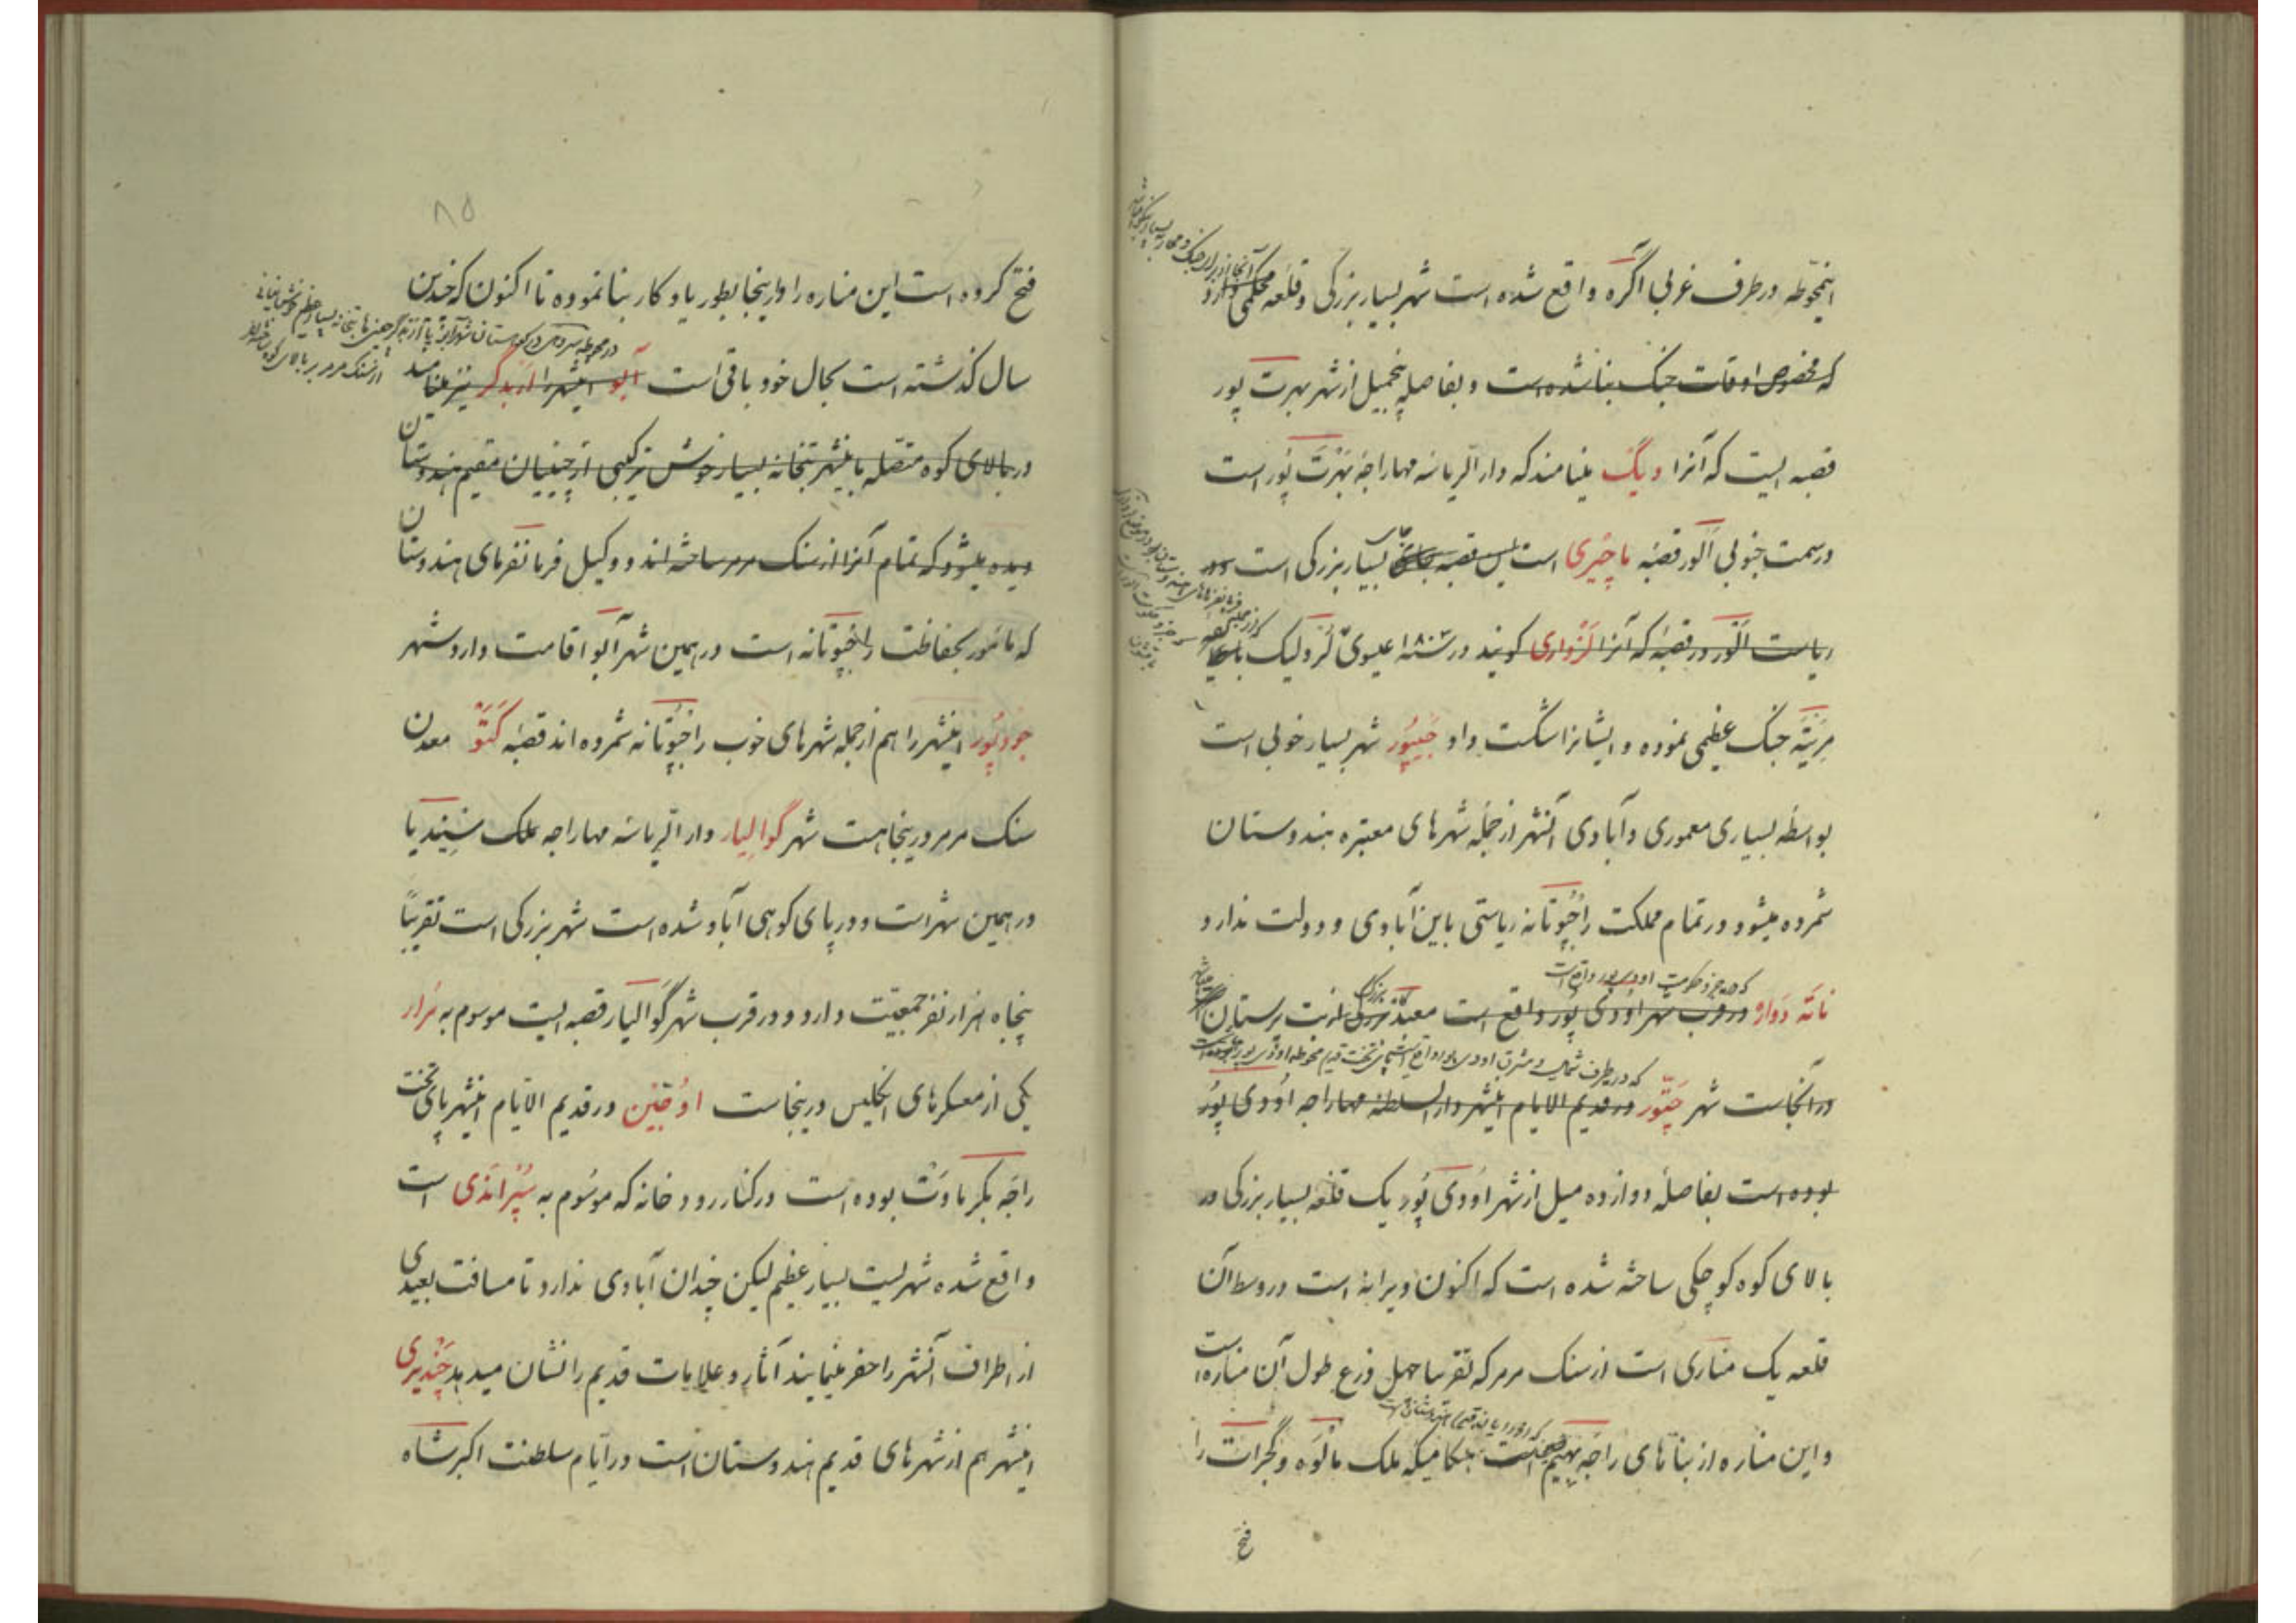 اینمحوّطه در طرف غربی اگره واقع شده است شهر بسیار بزرگی و قلعه محکمی دارد
که مخصوص اوقات جنک بنا شده است و بفاصله پنجمیل از شهر بهرت پور
قصبه ایست که آنرا دیگ مینامند که دار الریاسه مهاراجه بهرت پور است
در سمت جنوبی الور قصبه ماچیری است پس قصبه بسیار بزرکی است
ریاست الور در قصبه که آنرا لزواری کویند در سنه ۱۸۰۳ عیسوی لرد لیک با
مریته جنک عظیمی نموده و ایشانرا شکست داد جیپور شهر بسیار خوبی است
بواسطه بسیاری معموری و آبادی آنشهر از جمله شهرهای معتبره هندوستان
شمرده میشود و در تمام مملکت راجپوتانه ریاستی باین آبادی و دولت ندارد
که جزو حکومت اودی پور واقع است
ناته دواره در قرب شهر اودی پور واقع است معبد بزرکی از بت پرستان
که در طرف شمال و مشرق اودی پور واقع است
در آنجاست شهر چتور در قدیم الایام اینشهر دار السلطنه مهاراجه اودی پور
بوده است بفاصله دوازده میل از شهر اودی پور یک قلعه بسیار بزرکی در
بالای کوه کوچکی ساخته شده است که اکنون ویرانه است در وسط آن
قلعه یک مناری است از سنک مرمر که تقریبا چهل ذرع طول آن مناره است
و این مناره از بناهای راجه بهیم است هنکامیکه ملک مالوه و گجرات را
فتح
۸۵
فتح کرده است این مناره را در اینجا بطور یادکار بنا نموده تا اکنون که چندین
سال کذشته است بحال خود باقی است آبو اینشهر را ازبدگر نیز مینامند
از سنک مرمر بر بالای کوه
در بالای کوه متصله باینشهر بتخانه بسیار خوش ترکیبی از چینیان مقیم هندوستان
دیده میشود که تمام آنرا از سنک مرمر ساخته اند و وکیل فرمانفرمای هندوستان
که مامور بحفاظت راجپوتانه است در همین شهر آبو اقامت دارد شهر
جودپور اینشهر را هم از جمله شهرهای خوب راجپوتانه شمرده اند قصبه کتو معدن
سنک مرمر در ینجاهست شهر گوالیار دار الریاسه مهاراجه ملک شیندیا
در همین شهر است و در پای کوهی آباد شده است شهر بزرکی است تقریباً
پنجاه هزار نفر جمعیّت دارد و در قرب شهر گوالیار قصبه ایست موسوم به مرار
یکی از معسکرهای انکلیس در ینجاست اوجین در قدیم الایّام اینشهر پای تخت
راجه بکرماوت بوده است در کنار رودخانه که موسوم به سپراندی است
واقع شده شهریست بسیار عظیم لیکن چندان آبادی ندارد تا مسافت بعیدی
از اطراف آنشهر را حفر مینمایند آثار و علامات قدیم را نشان میدهد چندیری
اینشهر هم از شهرهای قدیم هندوستان است در ایّام سلطنت اکبر شاه